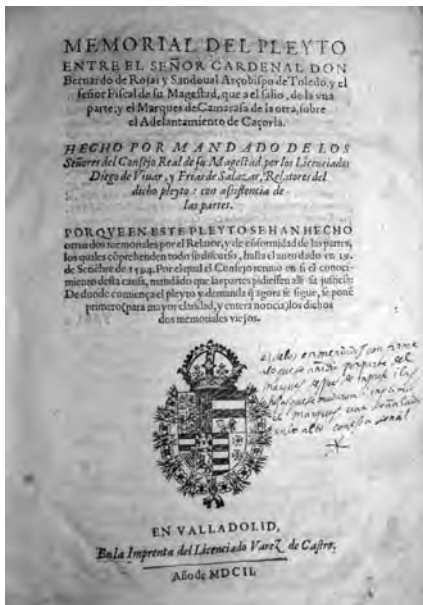 MEMORIAL DEL PLEYTO
ENTRE EL SEÑOR CARDENAL DON
Bernardo de Rojas y Sandoual Arçobispo de Toledo, y el
señor Fiscal de su Magestad, que a el salio, de la vna
parte; y el Marques de Camarasa de la otra, sobre
el Adelantamiento de Caçorla.
HECHO POR MANDADO DE LOS
Señores del Consejo Real de su Magestad por los Licenciados
Diego de Viuar, y Frias de Salazar, Relatores del
dicho pleyto: con assistencia de
las partes.
PORQVE EN ESTE PLEYTO SE HAN HECHO
otros dos memoriales por el Relator, y de cōformidad de las partes,
los quales cōprehenden todo su discurso, hasta el auto dado en 19.
de Setiēbre de 1594. Por el qual el Consejo retuuo en si el conoci-
miento desta causa, mandādo que las partes pidiessen alli su justicia:
De donde comiença el pleyto y demanda q̄ agora se sigue, se ponē
primero (para mayor claridad, y entera noticia) los dichos
dos memoriales viejos.
EN VALLADOLID,
En la Imprenta del Licenciado Varez de Castro.
Año de MDCII.